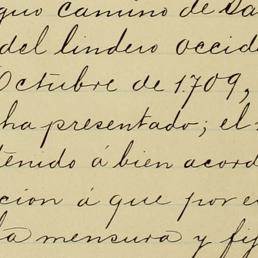 guo camino de Sa
del lindero occide
Octubre de 1.709,
ha presentado; el
tenido á bien acord
cion á que por e
la mensura y fij